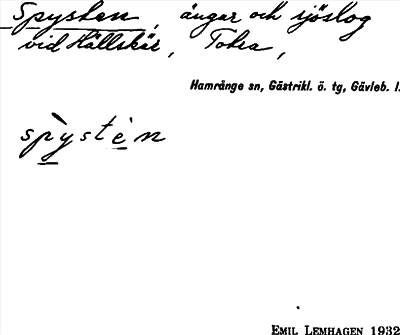 Spysten, ängar och sjöslog
vid Hällskär, Tolra,
Hamrånge sn, Gästrikl. ö. tg, Gävleb. l.
spỳstèn
EMIL LEMHAGEN 1932